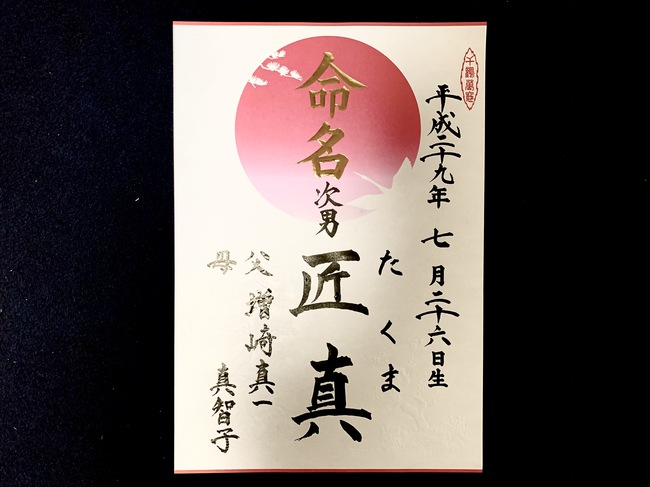 平成二十九年 七月二十六日生
たくま
命名
次男
匠真
父 増崎真一
母 真智子